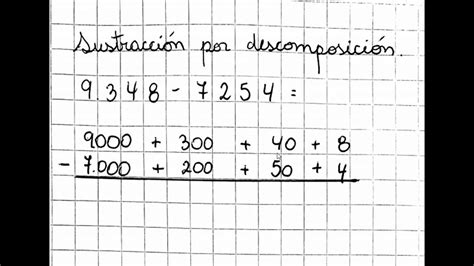 Sustracción por descomposición.
9348-7254=
9000 + 300 + 40 + 8
- 7.000 + 200 + 50 + 4